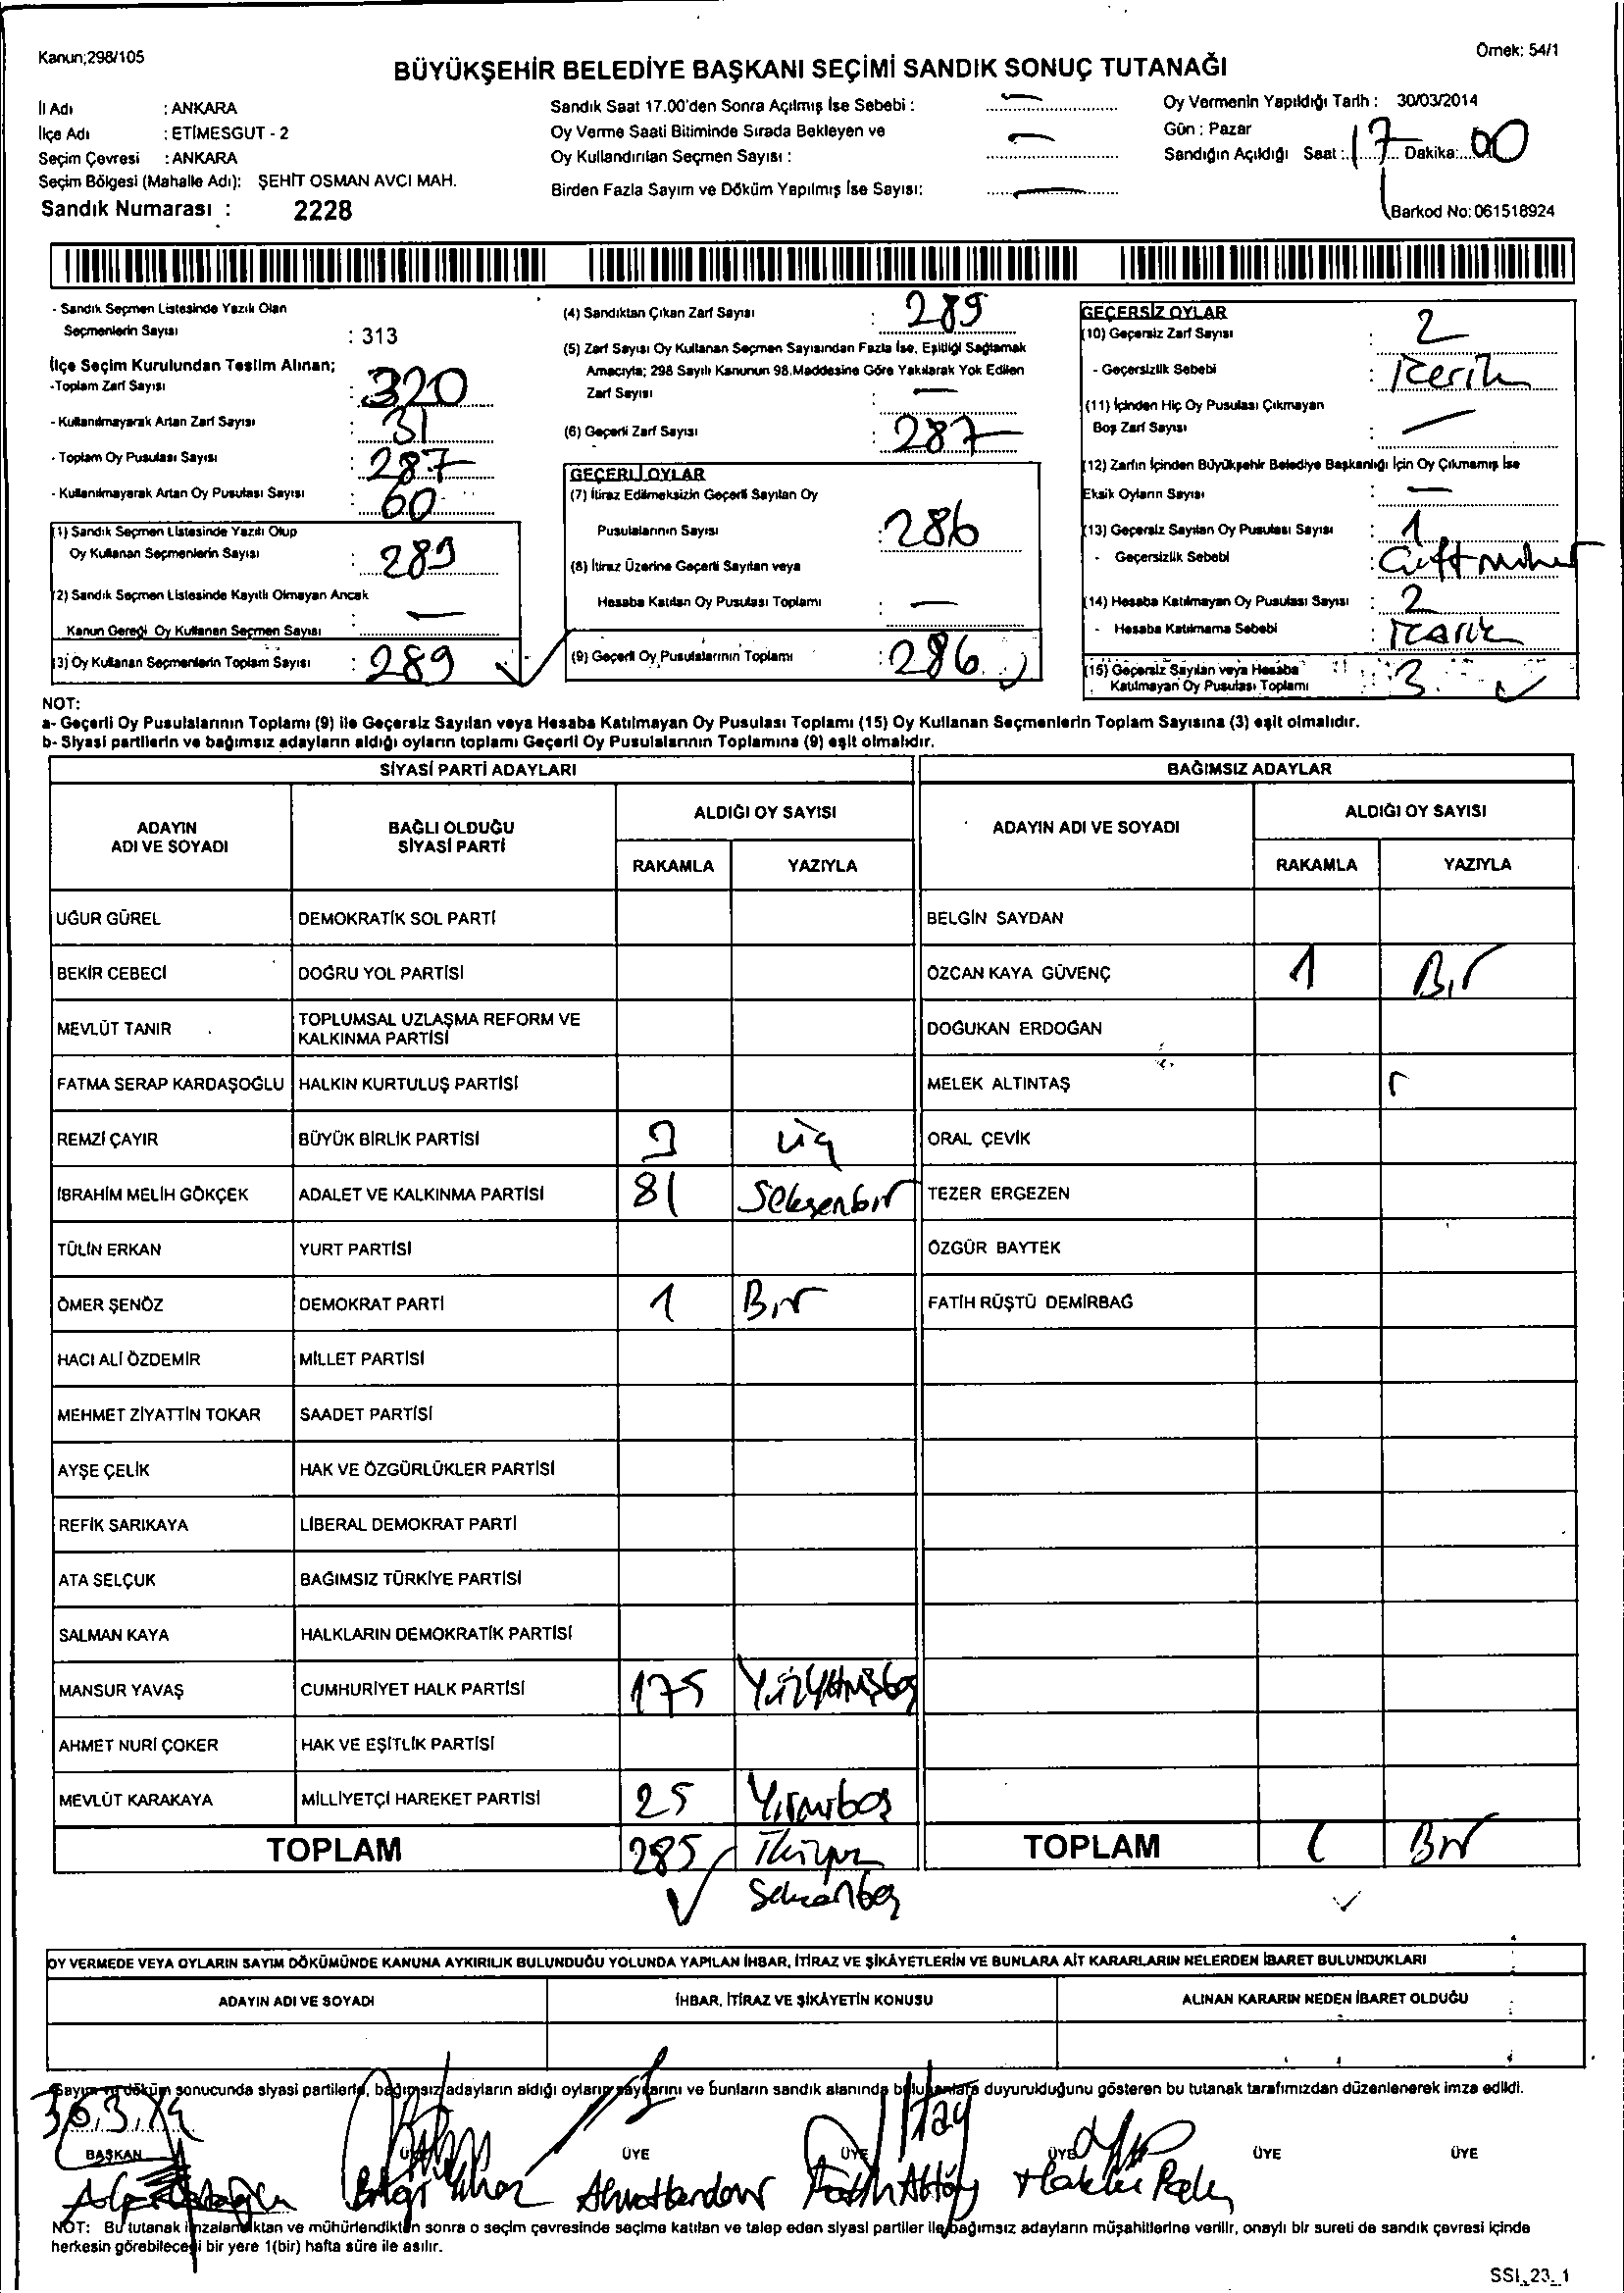 Kanun;298/105
Örnek: 54/1
BÜYÜKŞEHİR BELEDİYE BAŞKANI SEÇİMİ SANDIK SONUÇ TUTANAĞI
İl Adı : ANKARA
İlçe Adı : ETİMESGUT - 2
Seçim Çevresi : ANKARA
Seçim Bölgesi (Mahalle Adı): ŞEHİT OSMAN AVCI MAH.
Sandık Numarası : 2228
Sandık Saat 17.00'den Sonra Açılmış İse Sebebi : —
Oy Verme Saati Bitiminde Sırada Bekleyen ve
Oy Kullandırılan Seçmen Sayısı : —
Birden Fazla Sayım ve Döküm Yapılmış İse Sayısı: —
Oy Vermenin Yapıldığı Tarih : 30/03/2014
Gün : Pazar
Sandığın Açıldığı Saat : 17 Dakika: 00
Barkod No: 061518924
- Sandık Seçmen Listesinde Yazılı Olan
Seçmenlerin Sayısı : 313
İlçe Seçim Kurulundan Teslim Alınan;
-Toplam Zarf Sayısı : 320
- Kullanılmayarak Artan Zarf Sayısı : 31
- Toplam Oy Pusulası Sayısı : 287
- Kullanılmayarak Artan Oy Pusulası Sayısı : 60
(1) Sandık Seçmen Listesinde Yazılı Olup
Oy Kullanan Seçmenlerin Sayısı : 289
(2) Sandık Seçmen Listesinde Kayıtlı Olmayan Ancak
Kanun Gereği Oy Kullanan Seçmen Sayısı : —
(3) Oy Kullanan Seçmenlerin Toplam Sayısı : 289
(4) Sandıktan Çıkan Zarf Sayısı : 289
(5) Zarf Sayısı Oy Kullanan Seçmen Sayısından Fazla İse, Eşitliği Sağlamak
Amacıyla; 298 Sayılı Kanunun 98.Maddesine Göre Yakılarak Yok Edilen
Zarf Sayısı : —
(6) Geçerli Zarf Sayısı : 287
GEÇERLİ OYLAR
(7) İtiraz Edilmeksizin Geçerli Sayılan Oy
Pusulalarının Sayısı : 286
(8) İtiraz Üzerine Geçerli Sayılan veya
Hesaba Katılan Oy Pusulası Toplamı : —
(9) Geçerli Oy Pusulalarının Toplamı : 286
GEÇERSİZ OYLAR
(10) Geçersiz Zarf Sayısı : 2
- Geçersizlik Sebebi : İçerik
(11) İçinden Hiç Oy Pusulası Çıkmayan
Boş Zarf Sayısı : —
(12) Zarfın İçinden Büyükşehir Belediye Başkanlığı İçin Oy Çıkmamış İse
Eksik Oyların Sayısı : —
(13) Geçersiz Sayılan Oy Pusulası Sayısı : 1
- Geçersizlik Sebebi : Çift mühür
(14) Hesaba Katılmayan Oy Pusulası Sayısı : 2
- Hesaba Katılmama Sebebi :
(15) Geçersiz Sayılan veya Hesaba
Katılmayan Oy Pusulası Toplamı : 3
NOT:
a- Geçerli Oy Pusulalarının Toplamı (9) ile Geçersiz Sayılan veya Hesaba Katılmayan Oy Pusulası Toplamı (15) Oy Kullanan Seçmenlerin Toplam Sayısına (3) eşit olmalıdır.
b- Siyasi partilerin ve bağımsız adayların aldığı oyların toplamı Geçerli Oy Pusulalarının Toplamına (9) eşit olmalıdır.
SİYASİ PARTİ ADAYLARI
BAĞIMSIZ ADAYLAR
ADAYIN ADI VE SOYADI
BAĞLI OLDUĞU SİYASİ PARTİ
ALDIĞI OY SAYISI
RAKAMLA YAZIYLA
ADAYIN ADI VE SOYADI
ALDIĞI OY SAYISI
RAKAMLA YAZIYLA
UĞUR GÜREL DEMOKRATİK SOL PARTİ BELGİN SAYDAN
BEKİR CEBECİ DOĞRU YOL PARTİSİ ÖZCAN KAYA GÜVENÇ 1 Bir
MEVLÜT TANIR TOPLUMSAL UZLAŞMA REFORM VE KALKINMA PARTİSİ DOĞUKAN ERDOĞAN
FATMA SERAP KARDAŞOĞLU HALKIN KURTULUŞ PARTİSİ MELEK ALTINTAŞ
REMZİ ÇAYIR BÜYÜK BİRLİK PARTİSİ 3 üç ORAL ÇEVİK
İBRAHİM MELİH GÖKÇEK ADALET VE KALKINMA PARTİSİ 81 Seksenbir TEZER ERGEZEN
TÜLİN ERKAN YURT PARTİSİ ÖZGÜR BAYTEK
ÖMER ŞENÖZ DEMOKRAT PARTİ 1 Bir FATİH RÜŞTÜ DEMİRBAĞ
HACI ALİ ÖZDEMİR MİLLET PARTİSİ
MEHMET ZİYATTİN TOKAR SAADET PARTİSİ
AYŞE ÇELİK HAK VE ÖZGÜRLÜKLER PARTİSİ
REFİK SARIKAYA LİBERAL DEMOKRAT PARTİ
ATA SELÇUK BAĞIMSIZ TÜRKİYE PARTİSİ
SALMAN KAYA HALKLARIN DEMOKRATİK PARTİSİ
MANSUR YAVAŞ CUMHURİYET HALK PARTİSİ 175 Yüzyetmişbeş
AHMET NURİ ÇOKER HAK VE EŞİTLİK PARTİSİ
MEVLÜT KARAKAYA MİLLİYETÇİ HAREKET PARTİSİ 25 Yirmibeş
TOPLAM 285 İkiyüz Seksenbeş TOPLAM 1 Bir
OY VERMEDE VEYA OYLARIN SAYIM DÖKÜMÜNDE KANUNA AYKIRILIK BULUNDUĞU YOLUNDA YAPILAN İHBAR, İTİRAZ VE ŞİKÂYETLERİN VE BUNLARA AİT KARARLARIN NELERDEN İBARET BULUNDUKLARI
ADAYIN ADI VE SOYADI İHBAR, İTİRAZ VE ŞİKÂYETİN KONUSU ALINAN KARARIN NEDEN İBARET OLDUĞU
Sayım ve döküm sonucunda siyasi partilerle, bağımsız adayların aldığı oyların sayılarını ve bunların sandık alanında bulunanlara duyurulduğunu gösteren bu tutanak tarafımızdan düzenlenerek imza edildi.
30.3.14
BAŞKAN ÜYE ÜYE ÜYE ÜYE ÜYE ÜYE
NOT: Bu tutanak imzalandıktan ve mühürlendikten sonra o seçim çevresinde seçime katılan ve talep eden siyasi partiler ile bağımsız adayların müşahitlerine verilir, onaylı bir sureti de sandık çevresi içinde
herkesin görebileceği bir yere 1(bir) hafta süre ile asılır.
SSI_23_1